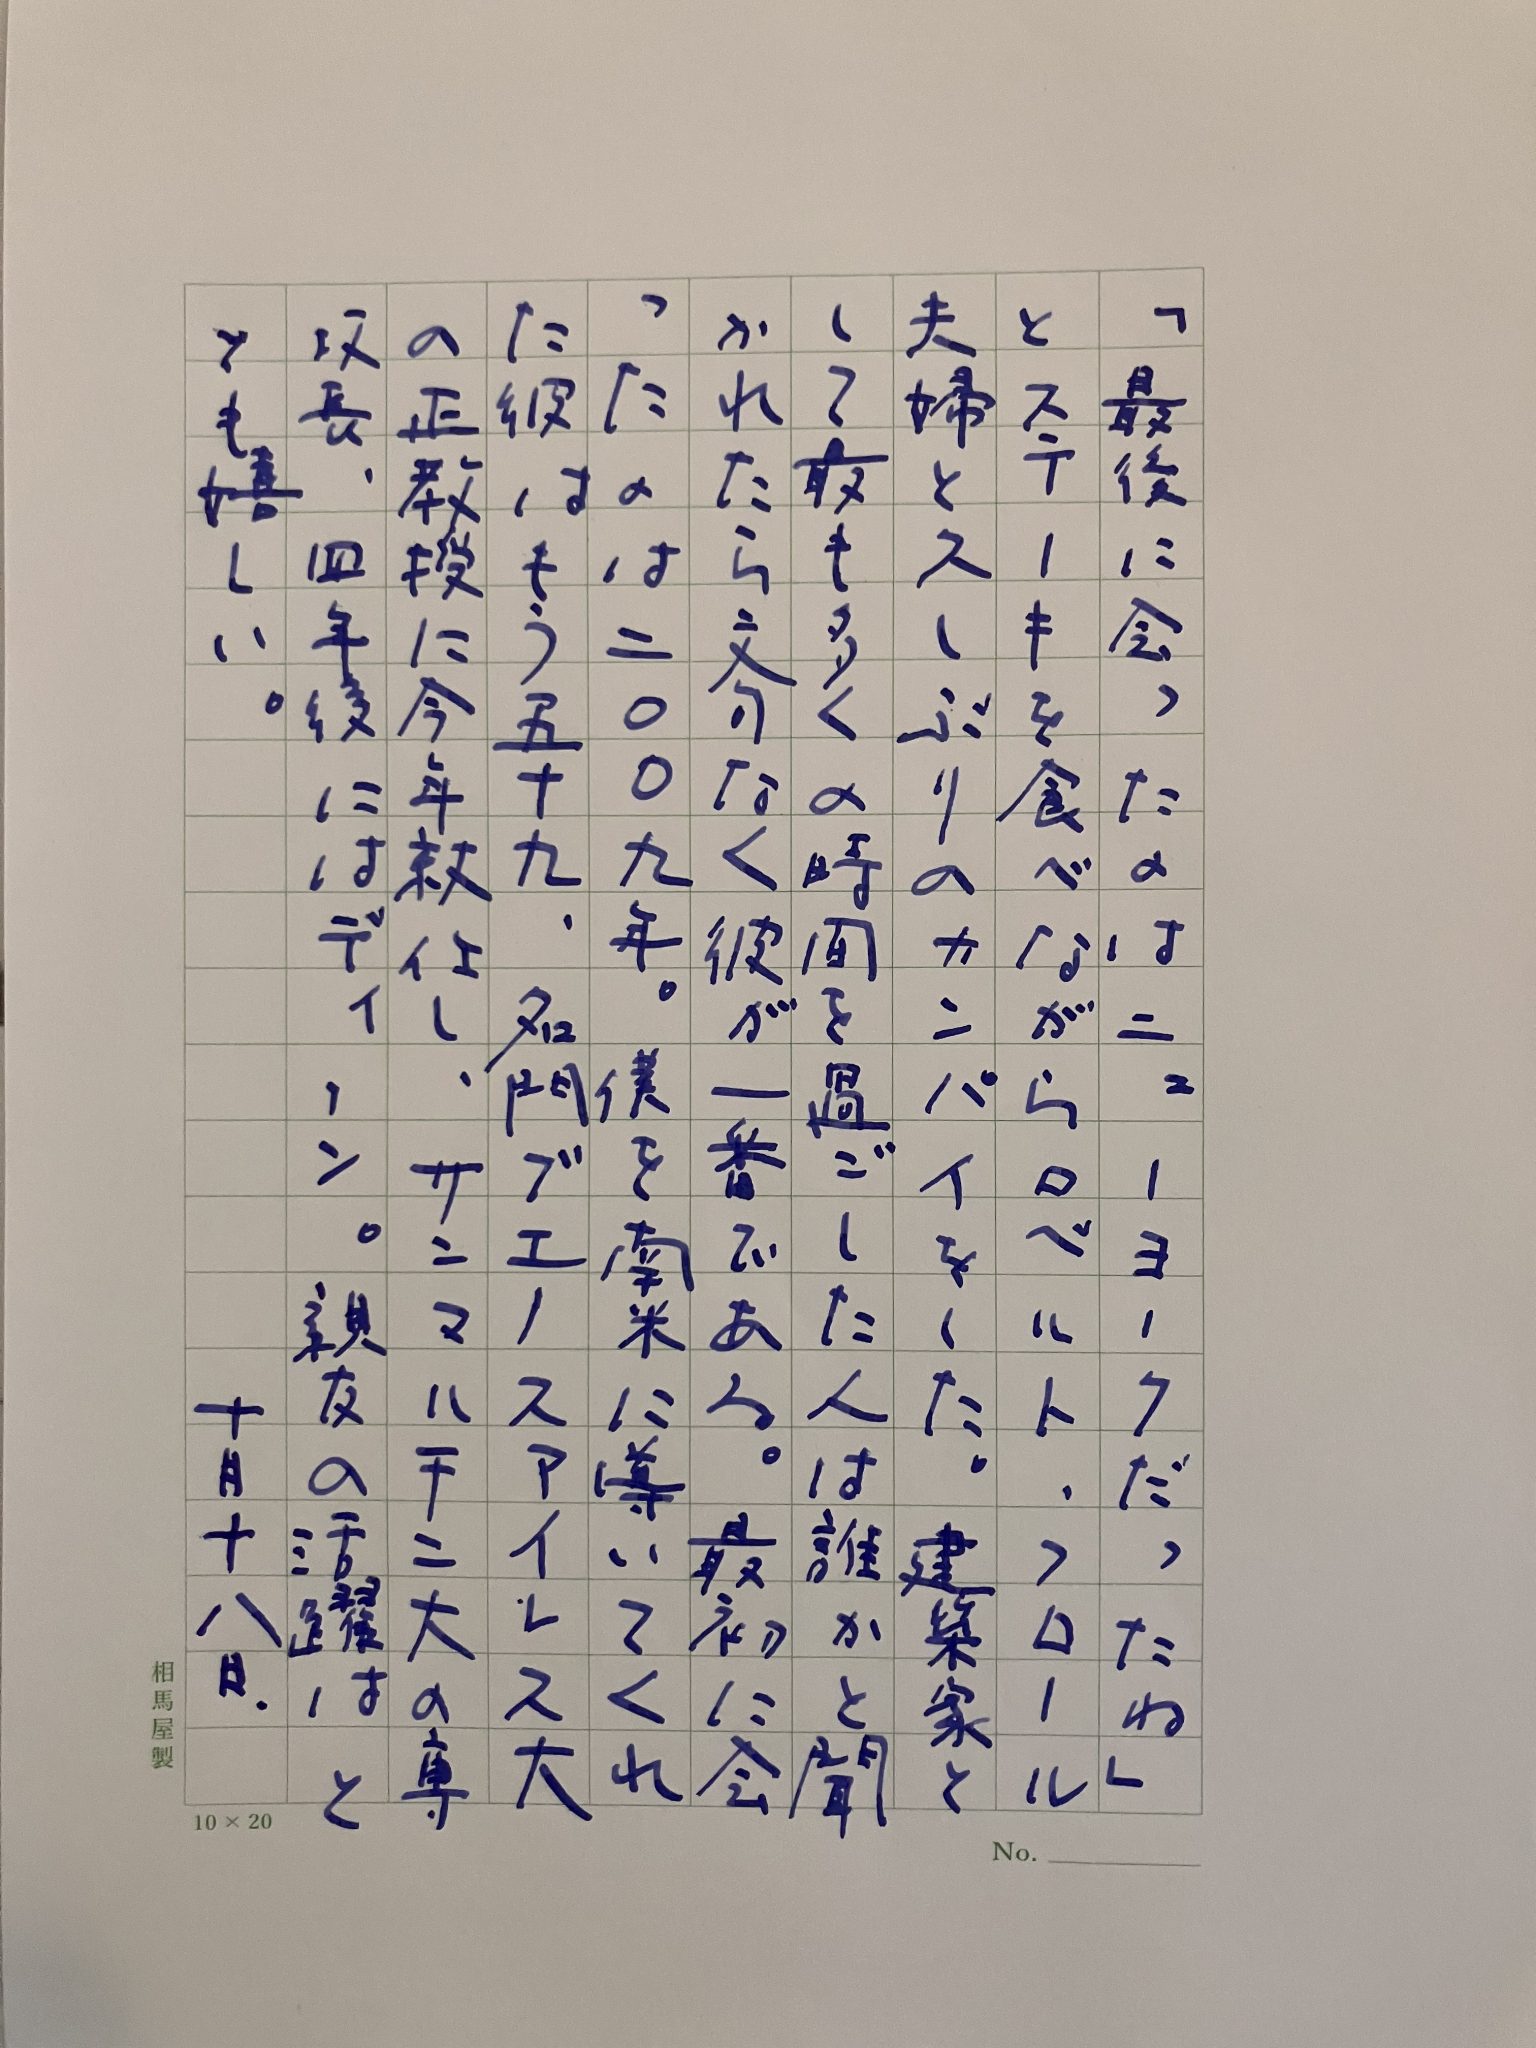 「最後に会ったのはニューヨークだったね」
とステーキを食べながらロベルト、フロール
夫婦とスしぶりのカンパイをした。建築家と
して最も多くの時間を過ごした人は誰かと聞
かれたら文句なく彼が一番である。最初に会
ったのは二〇〇九年。僕を南米に導いてくれ
た彼はもう五十九、名門ブエノスアイレス大
の正教授に今年就任し、サンマルティン大の専
攻長、四年後にはディーン。親友の活躍はと
ても嬉しい。 十月十八日.
相馬屋製
10 × 20
No.